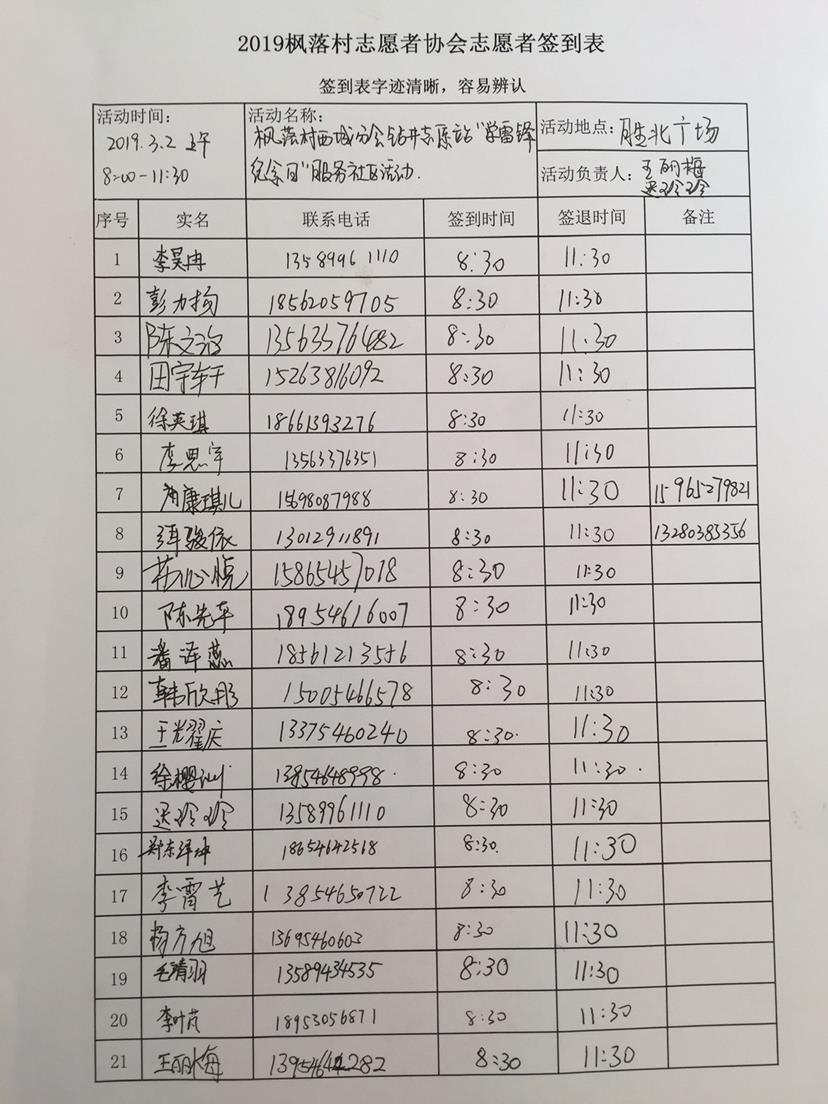 2019枫落村志愿者协会志愿者签到表
签到表字迹清晰，容易辨认
活动时间： 2019.3.2 上午 8:00-11:30
活动名称： 枫落村西城分会钻井志愿站"学雷锋纪念日"服务社区活动.
活动地点： 胜北广场
活动负责人： 王丽梅
序号 实名 联系电话 签到时间 签退时间 备注
1 李昊冉 13589961110 8:30 11:30
2 彭力扬 18562059705 8:30 11:30
3 陈文 13563376482 8:30 11:30
4 田宇轩 15263816092 8:30 11:30
5 徐英琪 18661393276 8:30 11:30
6 李思宇 13563376351 8:30 11:30
7 康琪儿 15698087988 8:30 11:30 15965279821
8 骏依 13012911891 8:30 11:30 13280385356
9 心悦 15865457018 8:30 11:30
10 陈先军 18954616007 8:30 11:30
11 潘泽蕊 18561213556 8:30 11:30
12 韩欣彤 15005466578 8:30 11:30
13 王光耀庆 13375460240 8:30. 11:30
14 徐樱 13854648998. 8:30 11:30.
15 玲玲 13589961110 8:30 11:30
16 郑东 18654642518 8:30. 11:30
17 李霄艺 13854650722 8:30 11:30
18 杨方旭 13695460603 8:30 11:30
19 毛靖羽 13589434535 8:30 11:30
20 李叶芃 18953056871 8:30 11:30
21 王丽梅 8:30 11:30